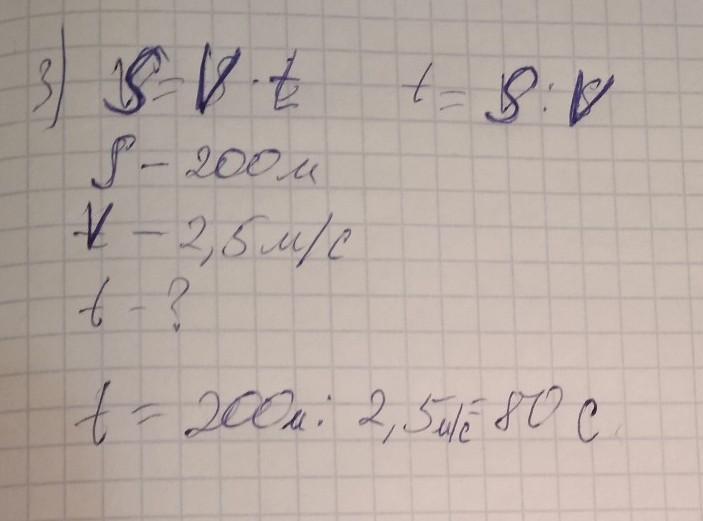 3) S = V · t t = S : V
S - 200м
V - 2,5 м/с
t - ?
t = 200м : 2,5м/с = 80 с